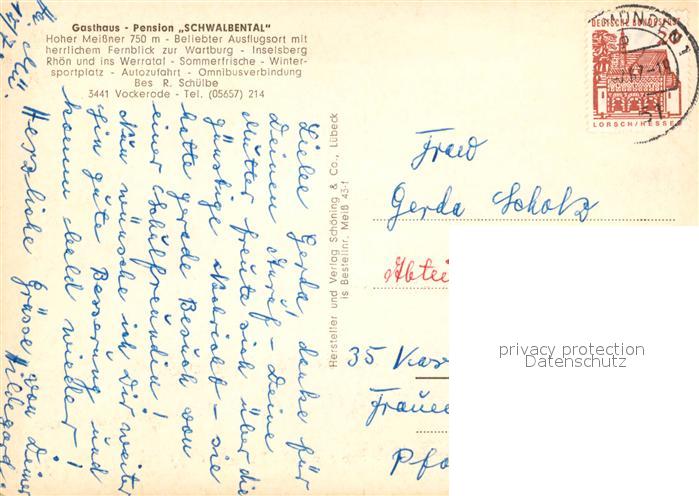 Gasthaus - Pension „SCHWALBENTAL"
Hoher Meißner 750 m - Beliebter Ausflugsort mit
herrlichem Fernblick zur Wartburg - Inselsberg
Rhön und ins Werratal - Sommerfrische - Winter-
sportplatz - Autozufahrt - Omnibusverbindung
Bes R. Schülbe
3441 Vockerode - Tel. (05657) 214
Liebe Gerda, danke für
Deinen Anruf - Deine
Mutter freute sich über die
günstige Nachricht - sie
hatte gerade Besuch von
einer Schulfreundin!
Nun wünsche ich Dir weiter
hin gute Besserung und
komm bald wieder!
Herzliche Grüsse von Deiner
Hildegard.
Hersteller und Verlag Schöning & Co., Lübeck
is Bestellnr. Meiß 43-f
DEUTSCHE BUNDESPOST
LORSCH/HESSEN
Frau
Gerda Scholz
Abtei
35 Kas
Fraue
Pfo
privacy protection
Datenschutz